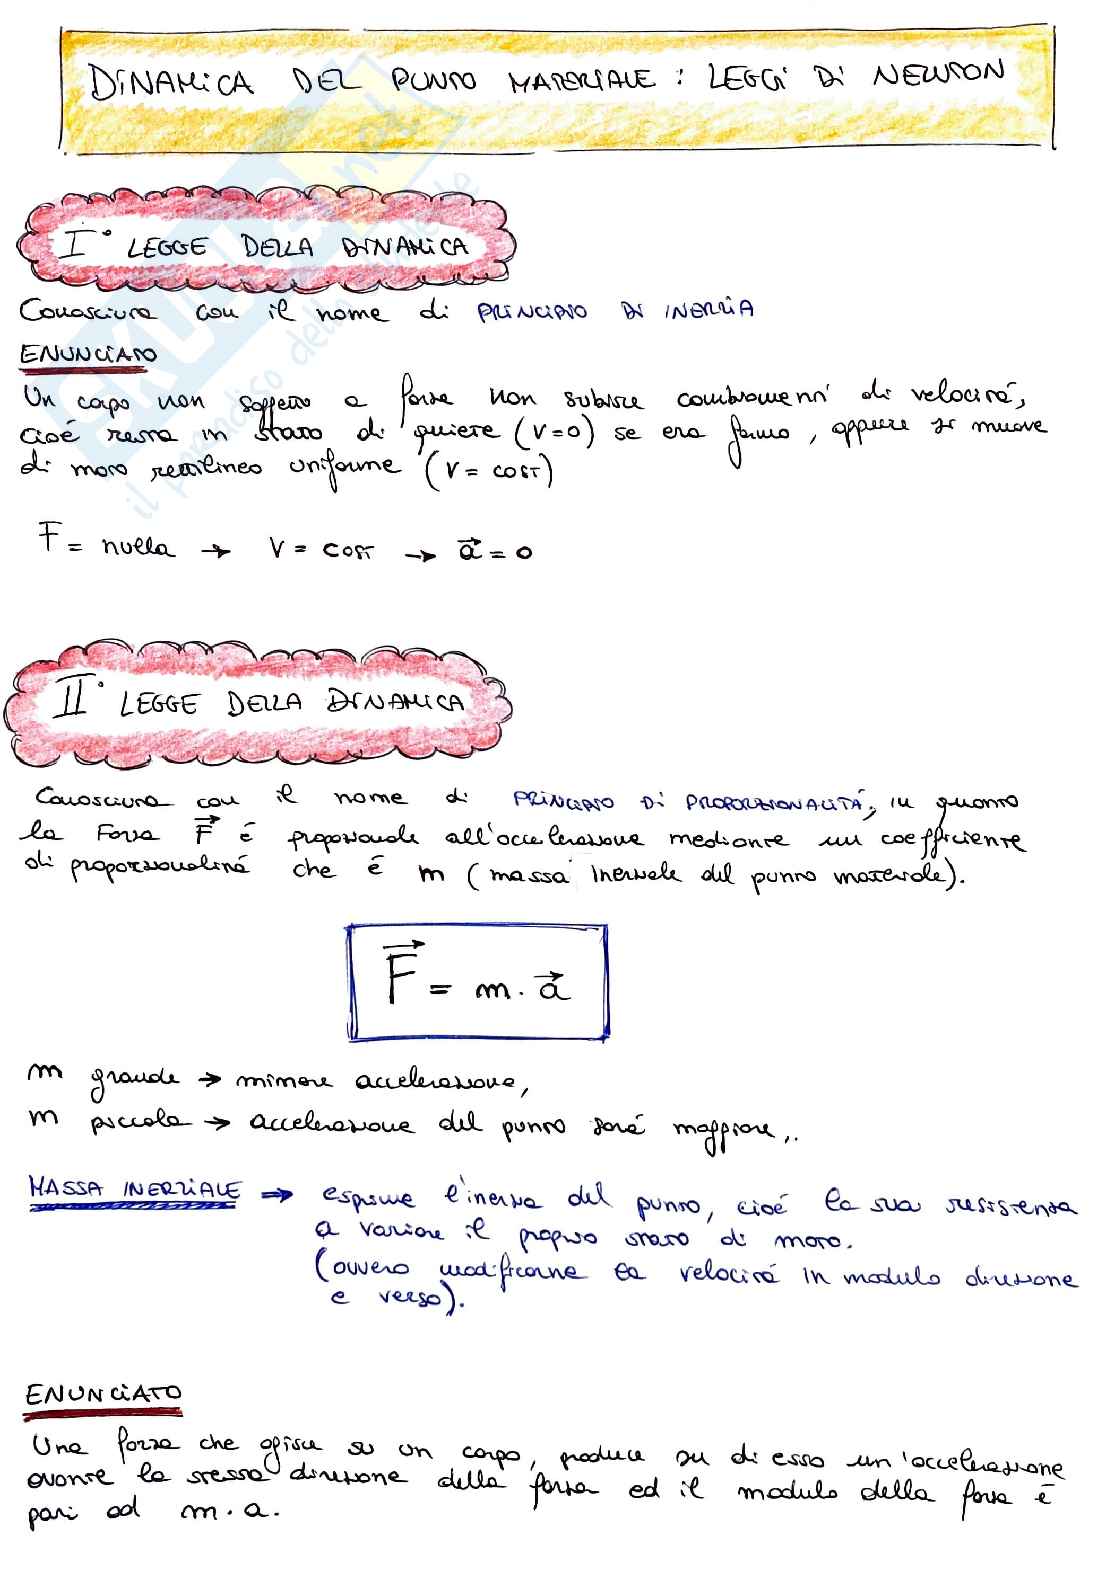 DINAMICA DEL PUNTO MATERIALE : LEGGI DI NEWTON
I° LEGGE DELLA DINAMICA
Conosciuta con il nome di PRINCIPIO DI INERZIA
ENUNCIATO
Un corpo non soggetto a forze non subisce cambiamenti di velocitá,
cioé resta in stato di quiete (V=0) se era fermo, oppure si muove
di moto rettilineo uniforme (V = COST)
F = nulla → V = COST → a⃗ = 0
II° LEGGE DELLA DINAMICA
Conosciuta con il nome di PRINCIPIO DI PROPORZIONALITÁ, in quanto
la Forza F⃗ é proporzionale all'accelerazione mediante un coefficiente
di proporzionalitá che é m (massa inerziale del punto materiale).
F⃗ = m · a⃗
m grande → minore accelerazione,
m piccola → accelerazione del punto sará maggiore,.
MASSA INERZIALE ⇒ esprime l'inerzia del punto, cioé la sua resistenza
a variare il proprio stato di moto.
(ovvero modificarne la velocitá in modulo direzione
e verso).
ENUNCIATO
Una forza che agisce su un corpo, produce su di esso un'accelerazione
avente la stessa direzione della forza ed il modulo della forza é
pari ad m·a.
SKUOLA.net
il paradiso dello studente